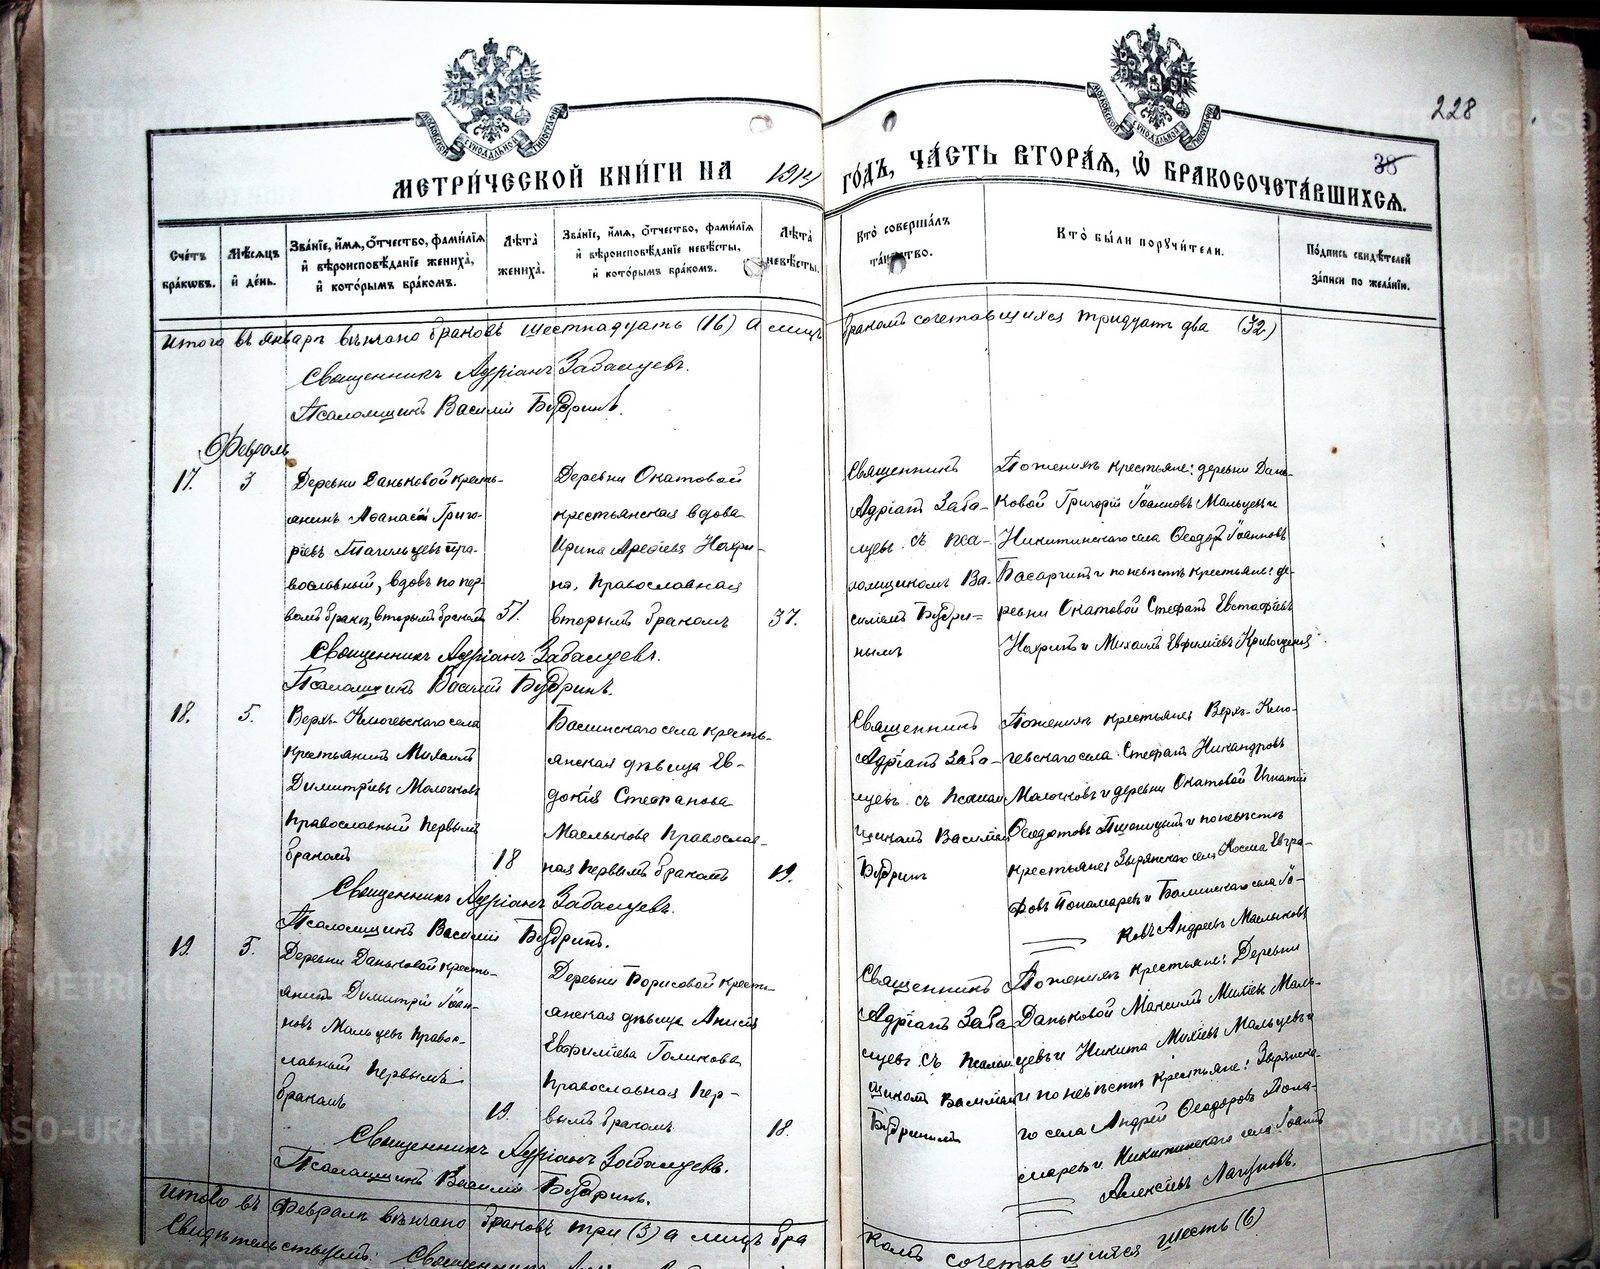 228
38
МЕТРИ́ЧЕСКОЙ КНИ́ГИ НА 1914 ГО́ДЪ, ЧА́СТЬ ВТОРА́Я, Ѡ БРАКОСОЧЕТА́ВШИХСЯ.
Сче́тъ бра́кѡвъ.
Мѣ́сяцъ и҆ де́нь.
Зва́нїе, и҆́мя, ѻ҆́тчество, фами́лїя и҆ вѣроисповѣ́данїе жениха̀, и҆ кото́рымъ бра́комъ.
Лѣ́та жениха̀.
Зва́нїе, и҆́мя, ѻ҆́тчество, фами́лїя и҆ вѣроисповѣ́данїе невѣ́сты, и҆ кото́рымъ бра́комъ.
Лѣ́та невѣ́сты.
Кто̀ соверша́лъ та́инство.
Кто̀ бы́ли пору́чители.
По́дпись свидѣ́телей за́писи по жела́нїю.
Итого въ январѣ вѣнчано браковъ шестнадцать (16) а лицъ бракомъ сочетавшихся тридцать два (32)
Священникъ Адріанъ Забалуевъ.
Псаломщикъ Василій Будринъ.
Февраль
17. 3
Деревни Даньковой кресть-
янинъ Аѳанасій Григо-
ріевъ Тагильцевъ пра-
вославный, вдовъ по пер-
вомъ бракѣ, вторымъ бракомъ
51.
Деревни Окатовой
крестьянская вдова
Ирина Нохри-
на, православная
вторымъ бракомъ
37.
Священникъ
Адріанъ Заба-
луевъ съ пса-
ломщикомъ Ва-
силіемъ Будри-
нымъ
По женихѣ крестьяне: деревни Дань-
ковой Григорій Іоанновъ Мальцевъ и
Никитинскаго села Ѳеодоръ Іоанновъ
Басаргинъ и по невѣстѣ крестьяне: де-
ревни Окатовой Стефанъ Евстафіевъ
Нохринъ и Михаилъ Евфиміевъ
Священникъ Адріанъ Забалуевъ.
Псаломщикъ Василій Будринъ.
18. 5.
Верхъ-Ключевскаго села
крестьянинъ Михаилъ
Димитріевъ Молочковъ
православный первымъ
бракомъ
18
села кресть-
янская дѣвица Ев-
докія Стефанова
православ-
ная первымъ бракомъ
19.
Священникъ
Адріанъ Заба-
луевъ съ псалом
щикомъ Василіем
Будринъ
По женихѣ крестьяне: Верхъ-Клю-
чевскаго села Стефанъ Никандровъ
Молочковъ и деревни Окатовой Игнатій
Ѳеодотовъ и по невѣстѣ
крестьяне: Зырянскаго села Косма Евгра-
фовъ Пономаревъ и села Іа-
ковъ Андреевъ
Священникъ Адріанъ Забалуевъ.
Псаломщикъ Василій Будринъ.
19. 5.
Деревни Даньковой кресть-
янинъ Димитрій Іоан-
новъ Мальцевъ правос-
лавный первымъ
бракомъ
19.
Деревни Борисовой кресть-
янская дѣвица Анисія
Евфиміева Голикова
православная пер-
вымъ бракомъ
18.
Священникъ
Адріанъ Заба
луевъ съ псалом
щикомъ Василіем
Будринымъ
По женихѣ крестьяне: Деревни
Даньковой Максимъ Маль-
цевъ и Никита Мальцевъ и
и по невѣстѣ крестьяне: Зырянска-
го села Андрей Ѳеодоровъ Поно-
маревъ и Никитинскаго села Іоаннъ
Алексіевъ Лагуновъ.
Священникъ Адріанъ Забалуевъ.
Псаломщикъ Василій Будринъ.
Итого въ Февралѣ вѣнчано браковъ три (3) а лицъ бра
комъ сочетавшихся шесть (6)
Свидѣтельствуемъ: Священникъ